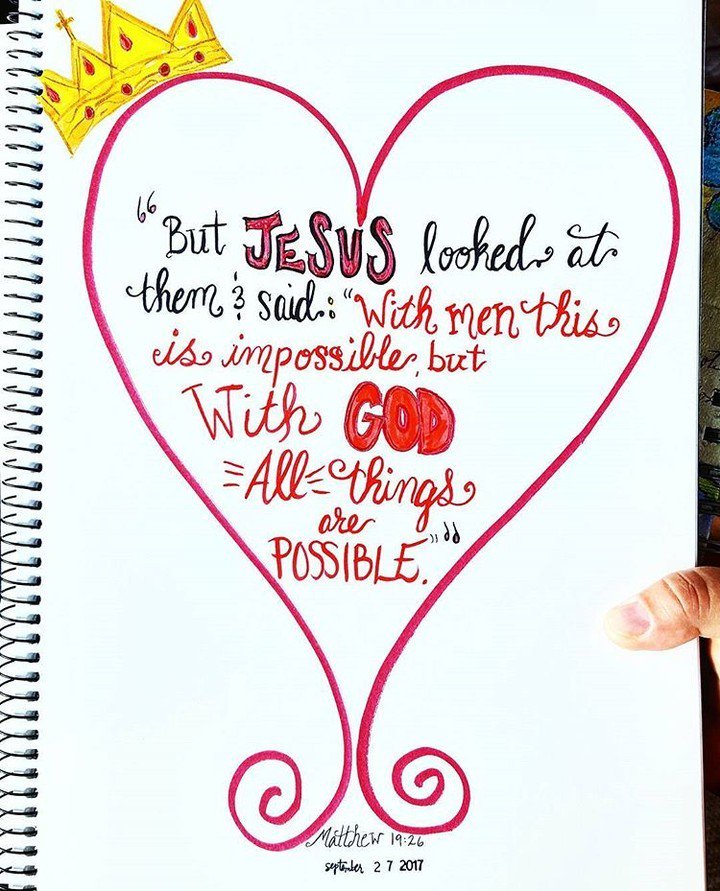 “But JESUS looked at
them & said: “With men this
is impossible, but
With GOD
All things
are
POSSIBLE.””
Matthew 19:26
september 27 2017